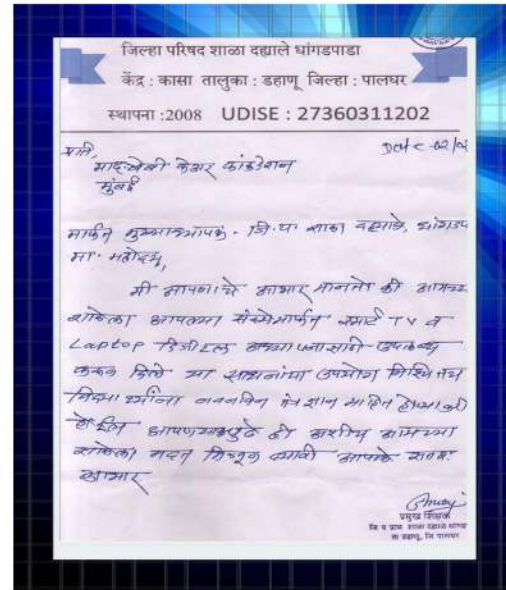 जिल्हा परिषद शाळा दह्याले धांगडपाडा
केंद्र : कासा तालुका : डहाणू जिल्हा : पालघर
स्थापना :2008 UDISE : 27360311202
प्रति, Date - 02/02
केअर फांउडेशन
मुंबई
मार्फत मुख्याध्यापक - जि. प शाळा दह्याले, धांगडप
मा. महोदय,
मी आपणांचे आभार मानतो की आमच्या
शाळेला आपल्या संस्थेमार्फत स्मार्ट TV व
Laptop डिजीटल अध्यापनासाठी उपलब्ध
करून दिले या साधनांचा उपयोग निश्चितच
विद्यार्थ्यांना नवनविन तंत्रज्ञान माहित होण्यासाठी
होईल आपण यापुढे ही अशीच आमच्या
शाळेला मदत मिळून द्यावी आपले
आभार
प्रमुख शिक्षक
जि प प्राथ. शाळा दह्याले धांगड
ता डहाणू, जि पालघर